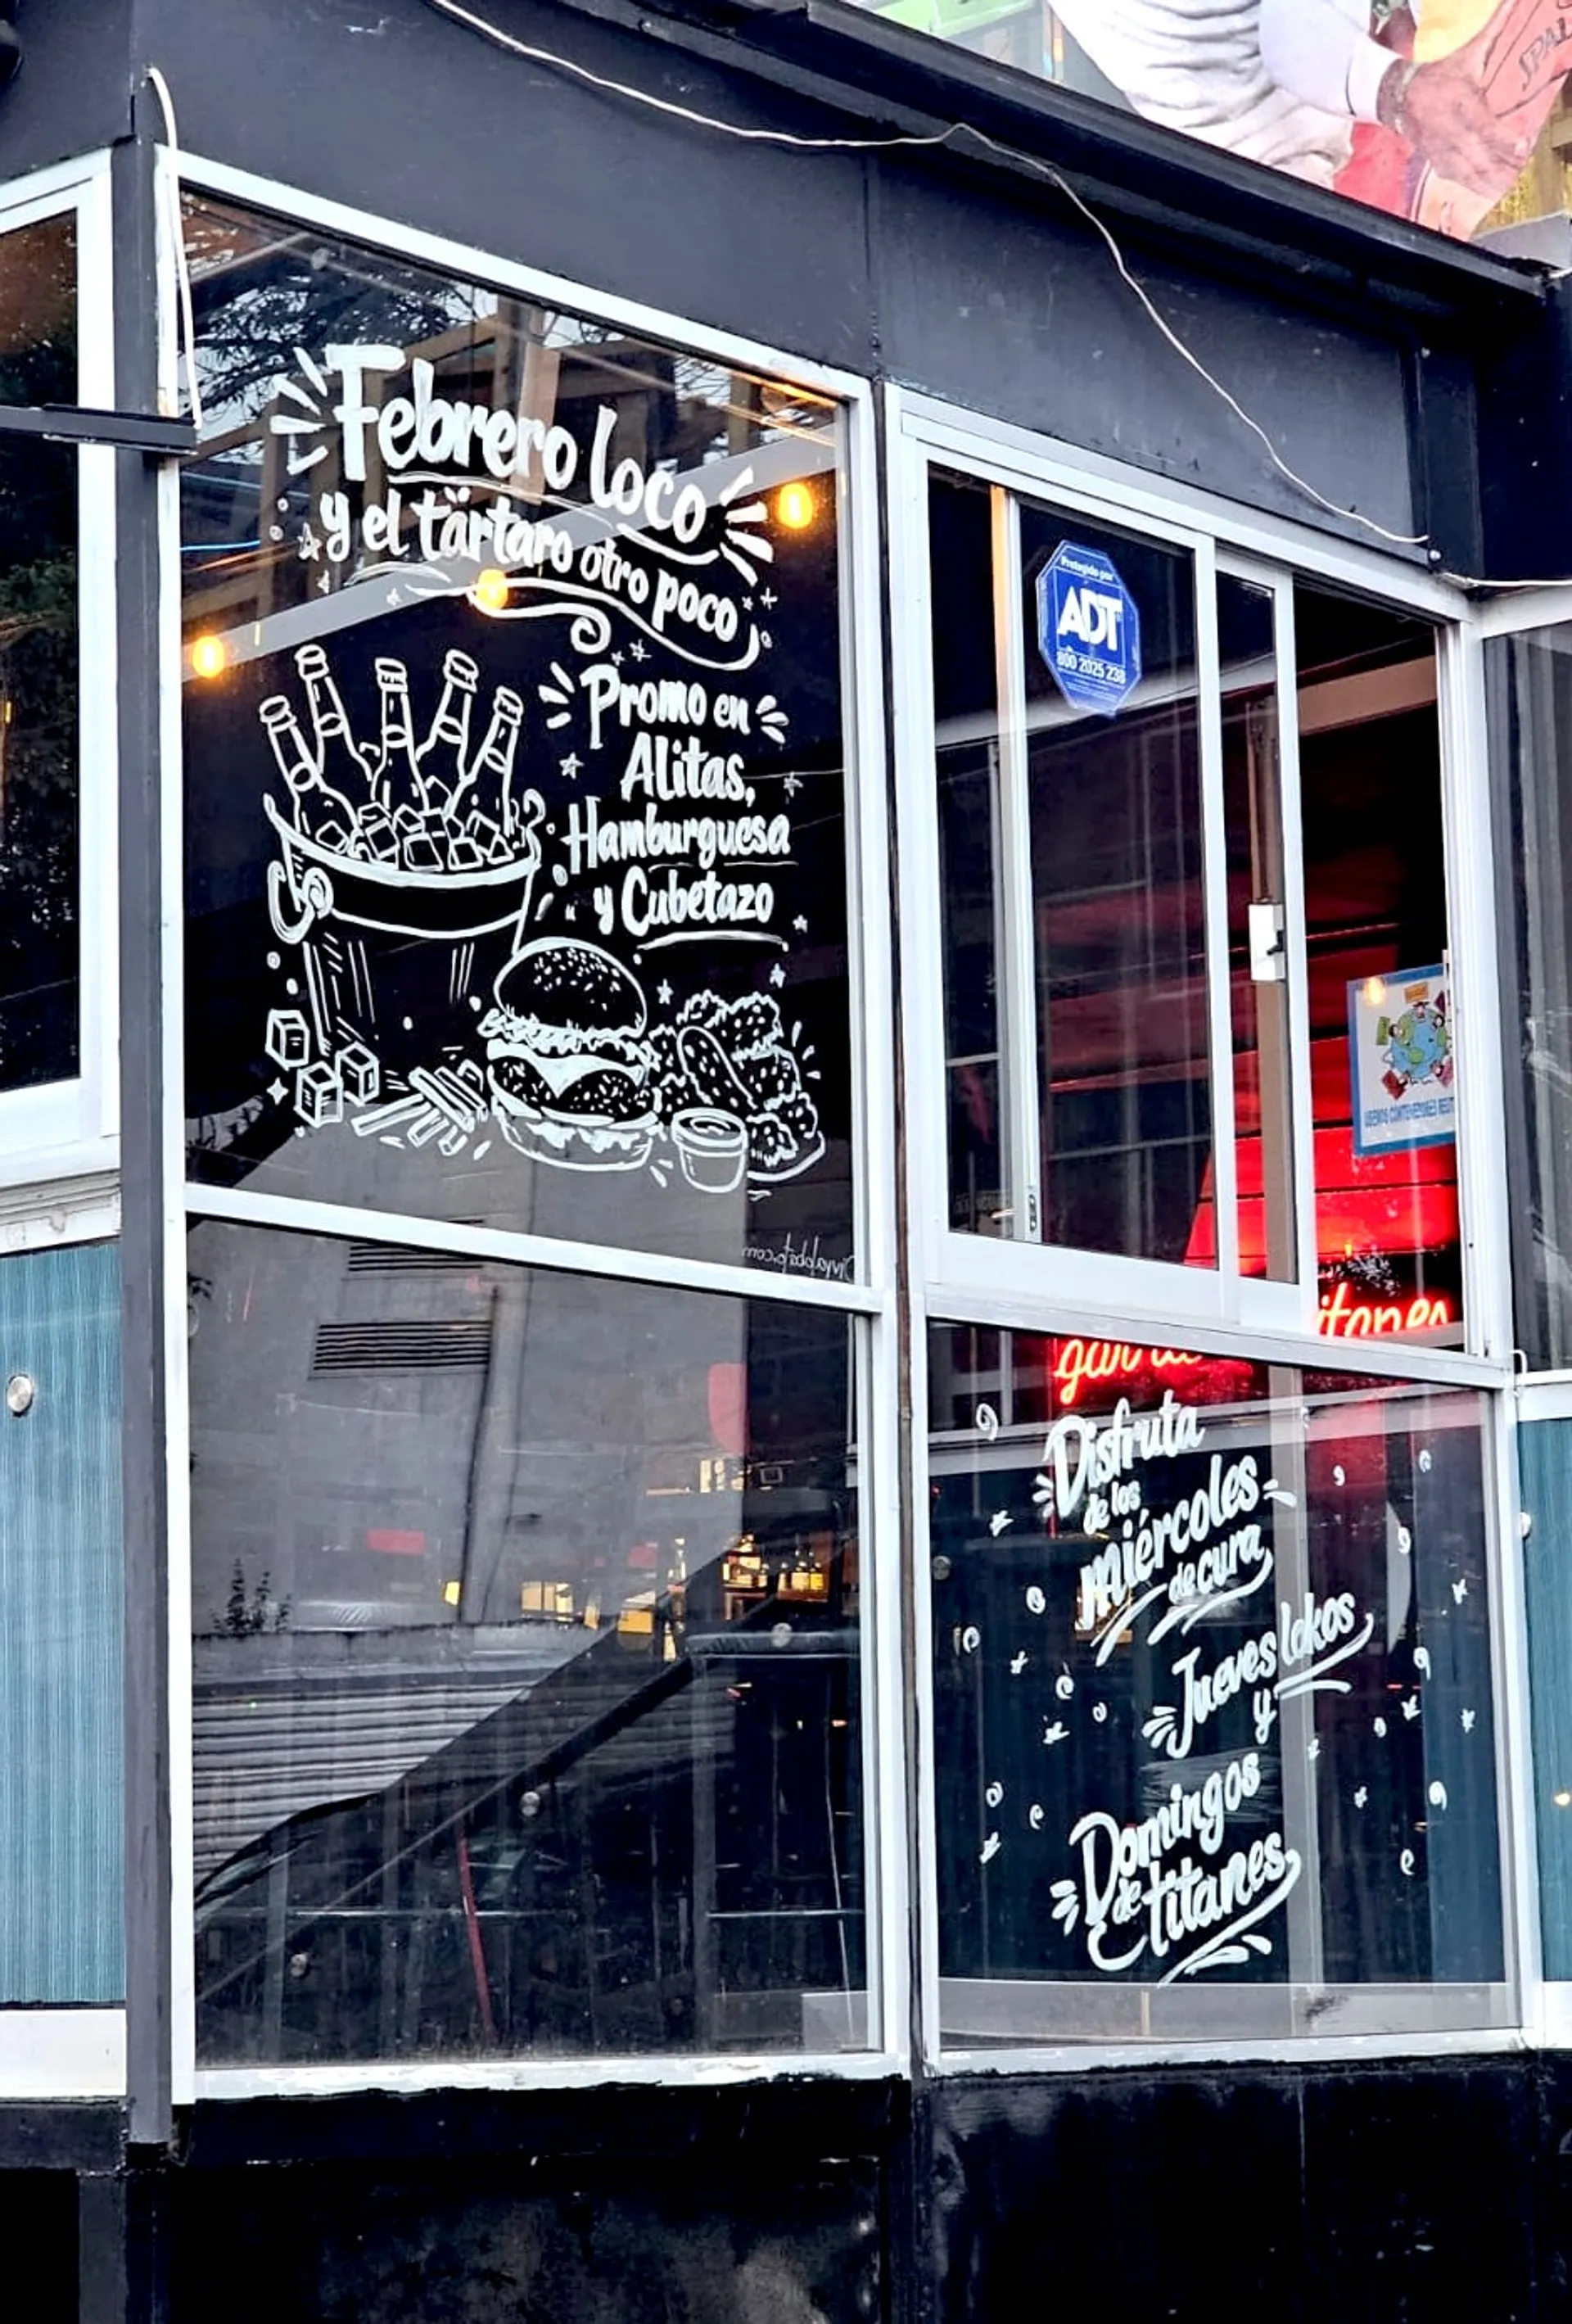 Febrero loco
y el tärtaro otro poco
Promo en
Alitas,
Hamburguesa
y Cubetazo
Protegido por
ADT
800 2025 238
Disfruta
de los
miércoles
de cura
Jueves lokos
y
Domingos
de titanes